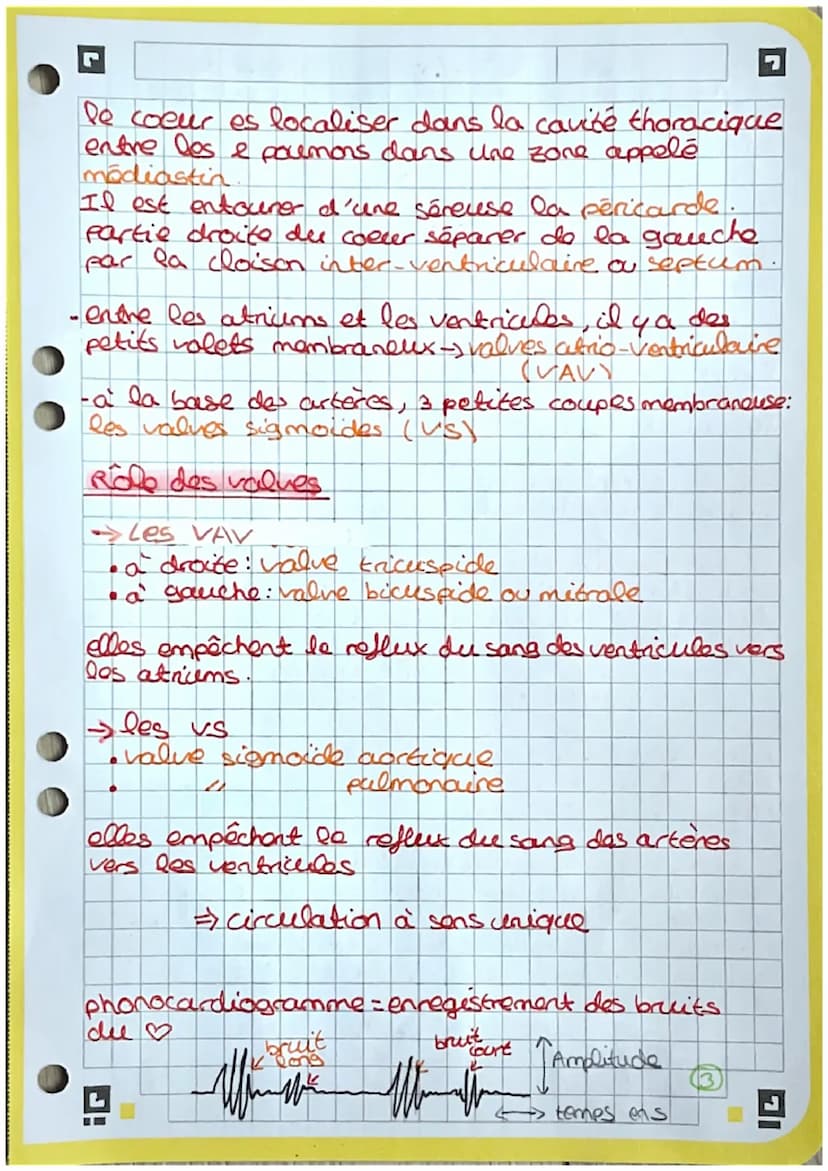 le coeur es localiser dans la cavité thoracique
entre les 2 poumons dans une zone appelé
médiastin.
Il est entourer d'une séreuse la péricarde.
partie droite du coeur séparer de la gauche
par la cloison inter-ventriculaire ou septum.
- entre les atriums et les ventricules, il y a des
petits volets membraneux → valves atrio-ventriculaire
(VAV)
- à la base des artères, 3 petites coupes membraneuse:
les valves sigmoides (VS)
Rôle des valves
→ Les VAV
• à droite: valve tricuspide
• à gauche: valve bicuspide ou mitrale
elles empêchent le reflux du sang des ventricules vers
les atriums.
→ les VS
• valve sigmoïde aortique
• " pulmonaire
elles empêchent le reflux du sang des artères
vers les ventricules
⇒ circulation à sens unique
phonocardiogramme = enregistrement des bruits
du ♡
bruit long
bruit court
Amplitude
temps en s
3